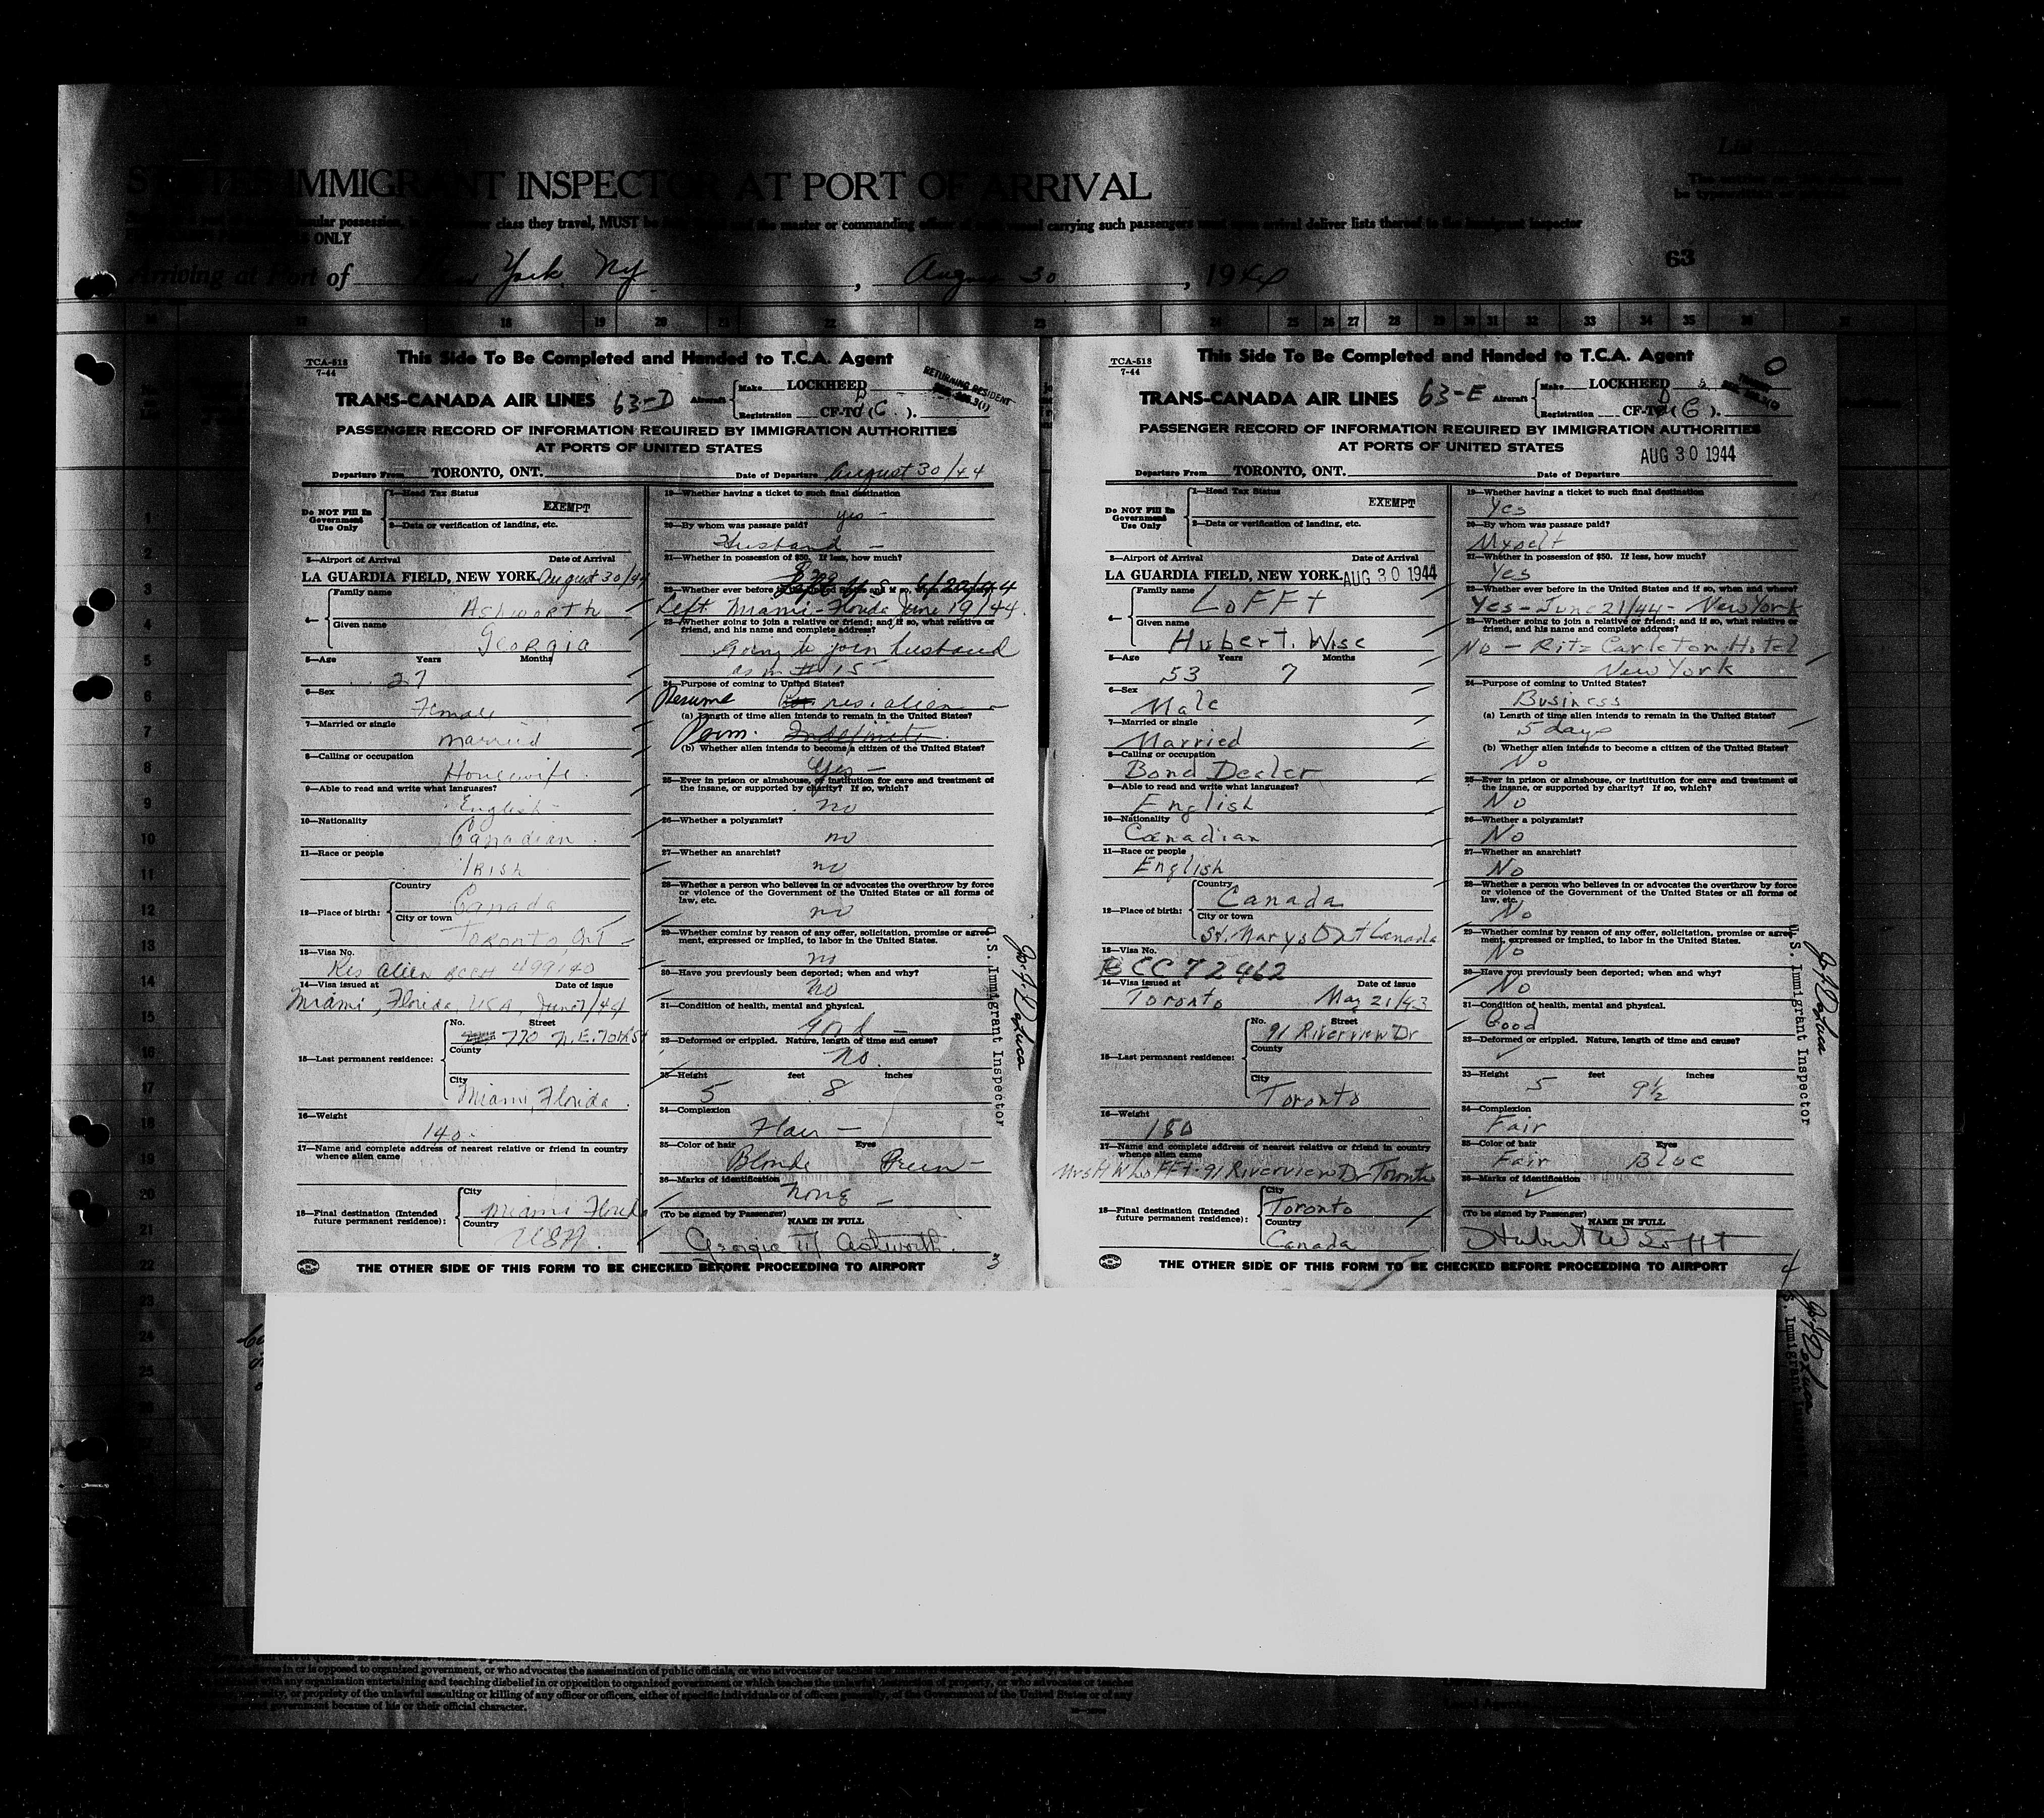 STATES IMMIGRANT INSPECTOR AT PORT OF ARRIVAL
class they travel, MUST be the master or commanding officer of carrying such passengers must upon arrival deliver lists thereof to the immigrant inspector
ONLY
63
Arriving at Port of New York, Ny, August 30, 1944
TCA-518
7-44
This Side To Be Completed and Handed to T.C.A. Agent
RETURNING RESIDENT
TRANS-CANADA AIR LINES 63-D Aircraft Make LOCKHEED
Registration CF-TC (C).
PASSENGER RECORD OF INFORMATION REQUIRED BY IMMIGRATION AUTHORITIES
AT PORTS OF UNITED STATES
Departure From TORONTO, ONT. Date of Departure August 30/44
Do NOT Fill In
Government
Use Only
1—Head Tax Status
EXEMPT
2—Data or verification of landing, etc.
3—Airport of Arrival Date of Arrival
LA GUARDIA FIELD, NEW YORK. August 30/44
4— Family name
Ashworth
Given name
Georgia
5—Age Years Months
27
6—Sex
Female
7—Married or single
married
8—Calling or occupation
Housewife.
9—Able to read and write what languages?
English
10—Nationality
Canadian
11—Race or people
IRISH
12—Place of birth: Country
Canada
City or town
Toronto, Ont
13—Visa No.
Res alien 499140
14—Visa issued at Date of issue
Miami, Florida, USA,
15—Last permanent residence: No. Street
770 N.E. 70th St
County
City
Miami, Florida.
16—Weight
140.
17—Name and complete address of nearest relative or friend in country
whence alien came
18—Final destination (Intended
future permanent residence): City
Miami Florida
Country
USA.
19—Whether having a ticket to such final destination
yes
20—By whom was passage paid?
Husband
21—Whether in possession of $50. If less, how much?
22—Whether ever before in the United States and if so, when and where?
Left Miami-Florida June 19/44.
23—Whether going to join a relative or friend; and if so, what relative or
friend, and his name and complete address?
Going to join husband
as in # 15
24—Purpose of coming to United States?
Resume res. alien
(a) Length of time alien intends to remain in the United States?
Perm. Indefinite.
(b) Whether alien intends to become a citizen of the United States?
Yes
25—Ever in prison or almshouse, or institution for care and treatment of
the insane, or supported by charity? If so, which?
no
26—Whether a polygamist?
no
27—Whether an anarchist?
no
28—Whether a person who believes in or advocates the overthrow by force
or violence of the Government of the United States or all forms of
law, etc.
no
29—Whether coming by reason of any offer, solicitation, promise or agree-
ment, expressed or implied, to labor in the United States.
no
30—Have you previously been deported; when and why?
no
31—Condition of health, mental and physical.
Good
32—Deformed or crippled. Nature, length of time and cause?
no.
33—Height feet inches
5 8
34—Complexion
Fair
35—Color of hair Eyes
Blonde Green
36—Marks of identification
none
(To be signed by Passenger) NAME IN FULL
Georgia M Ashworth.
THE OTHER SIDE OF THIS FORM TO BE CHECKED BEFORE PROCEEDING TO AIRPORT
3
U.S. Immigrant Inspector
TCA-518
7-44
This Side To Be Completed and Handed to T.C.A. Agent
TRANS-CANADA AIR LINES 63-E Aircraft Make LOCKHEED
Registration CF-TC (G).
PASSENGER RECORD OF INFORMATION REQUIRED BY IMMIGRATION AUTHORITIES
AT PORTS OF UNITED STATES
Departure From TORONTO, ONT. Date of Departure AUG 30 1944
Do NOT Fill In
Government
Use Only
1—Head Tax Status
EXEMPT
2—Data or verification of landing, etc.
3—Airport of Arrival Date of Arrival
LA GUARDIA FIELD, NEW YORK. AUG 30 1944
4— Family name
LoFFt
Given name
Hubert. Wise
5—Age Years Months
53 7
6—Sex
Male
7—Married or single
Married
8—Calling or occupation
Bond Dealer
9—Able to read and write what languages?
English
10—Nationality
Canadian
11—Race or people
English
12—Place of birth: Country
Canada
City or town
St. Marys Ont Canada
13—Visa No.
BCC 72462
14—Visa issued at Date of issue
Toronto May 21/43
15—Last permanent residence: No. Street
91 Riverview Dr
County
City
Toronto
16—Weight
180
17—Name and complete address of nearest relative or friend in country
whence alien came
Mrs H W LoFFt-91 Riverview Dr Toronto
18—Final destination (Intended
future permanent residence): City
Toronto
Country
Canada
19—Whether having a ticket to such final destination
Yes
20—By whom was passage paid?
Myself
21—Whether in possession of $50. If less, how much?
Yes
22—Whether ever before in the United States and if so, when and where?
Yes - June 21/44 - New York
23—Whether going to join a relative or friend; and if so, what relative or
friend, and his name and complete address?
No - Ritz Carleton Hotel
New York
24—Purpose of coming to United States?
Business
(a) Length of time alien intends to remain in the United States?
5 days
(b) Whether alien intends to become a citizen of the United States?
No
25—Ever in prison or almshouse, or institution for care and treatment of
the insane, or supported by charity? If so, which?
No
26—Whether a polygamist?
No
27—Whether an anarchist?
No
28—Whether a person who believes in or advocates the overthrow by force
or violence of the Government of the United States or all forms of
law, etc.
No
29—Whether coming by reason of any offer, solicitation, promise or agree-
ment, expressed or implied, to labor in the United States.
No
30—Have you previously been deported; when and why?
No
31—Condition of health, mental and physical.
Good
32—Deformed or crippled. Nature, length of time and cause?
33—Height feet inches
5 9½
34—Complexion
Fair
35—Color of hair Eyes
Fair Blue
36—Marks of identification
(To be signed by Passenger) NAME IN FULL
Hubert W Lofft
THE OTHER SIDE OF THIS FORM TO BE CHECKED BEFORE PROCEEDING TO AIRPORT
4
U.S. Immigrant Inspector
in or is opposed to organized government, or who advocates the assassination of public officials, or who advocates or teaches
with any organization entertaining and teaching disbelief in or opposition to organized government or which teaches the unlawful destruction of property, or who advocates or teaches
or propriety of the unlawful assaulting or killing of any officer or officers, either of specific individuals or of officers generally, of the Government of the United States or of any
government because of his or their official character.